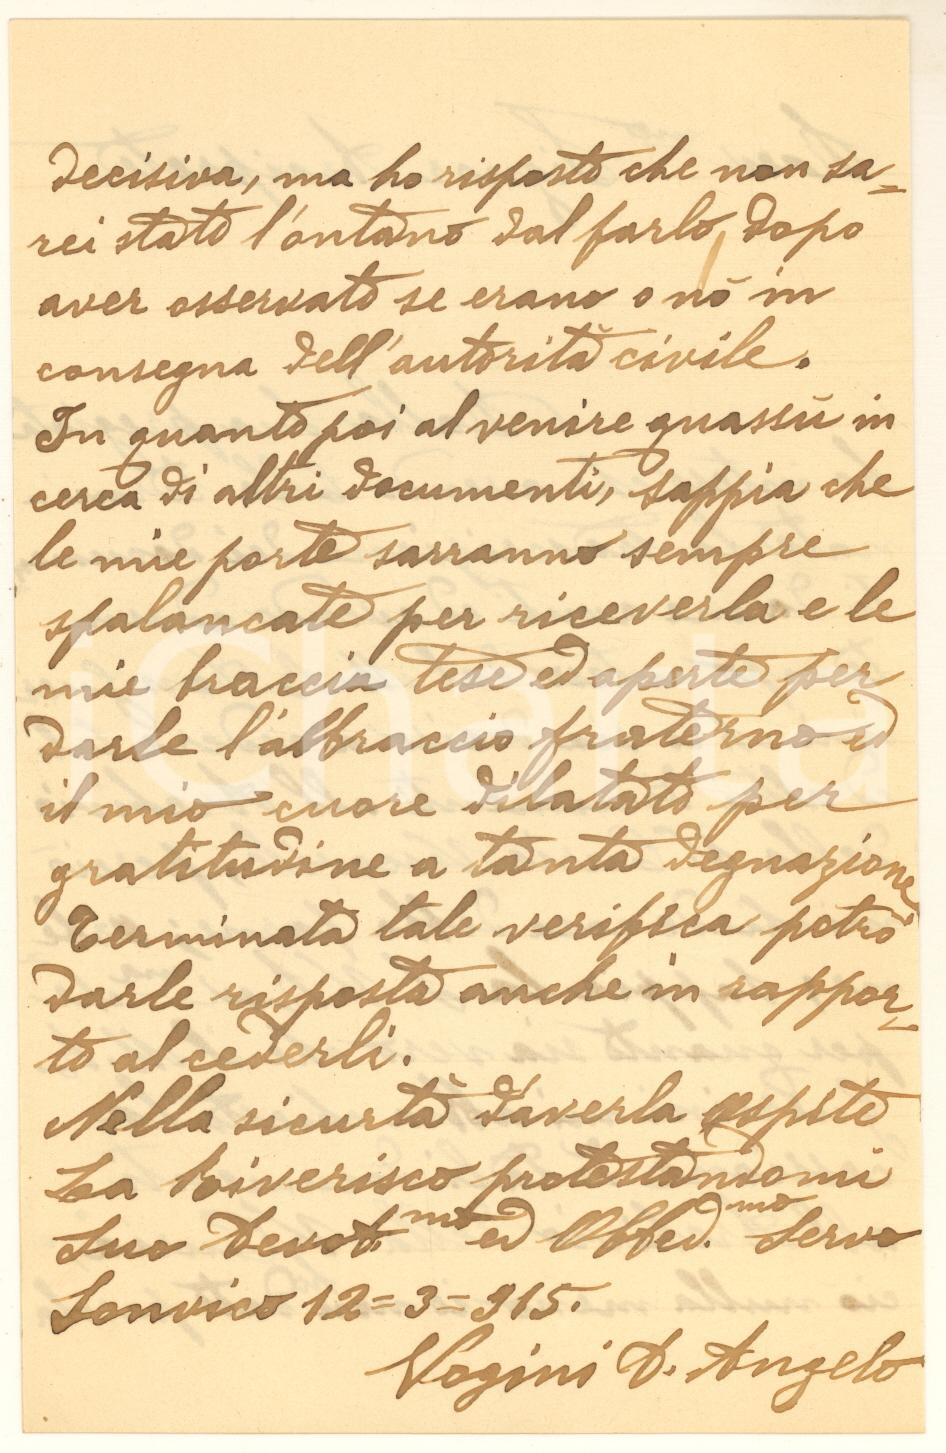 decisiva, ma ho risposto che non sa=
rei stato l'ontano dal farlo, dopo
aver osservato se erano o nò in
consegna dell'autorità civile.
In quanto poi al venire quassù in
cerca di altri documenti, sappia che
le mie porte sarranno sempre
spalancate per riceverla e le
mie braccia tese ed aperte per
darle l'abbraccio fraterno ed
il mio cuore dilatato per
gratitudine a tanta degnazione
Terminata tale verifica potrò
darle risposta anche in rappor=
to al cederli.
Nella sicurtà d'averla ospite
La Riverisco protestandomi
Suo Devot.mo ed Obbed.mo Servo
Sonvico 12=3=915.
Vogini D. Angelo
iCharta